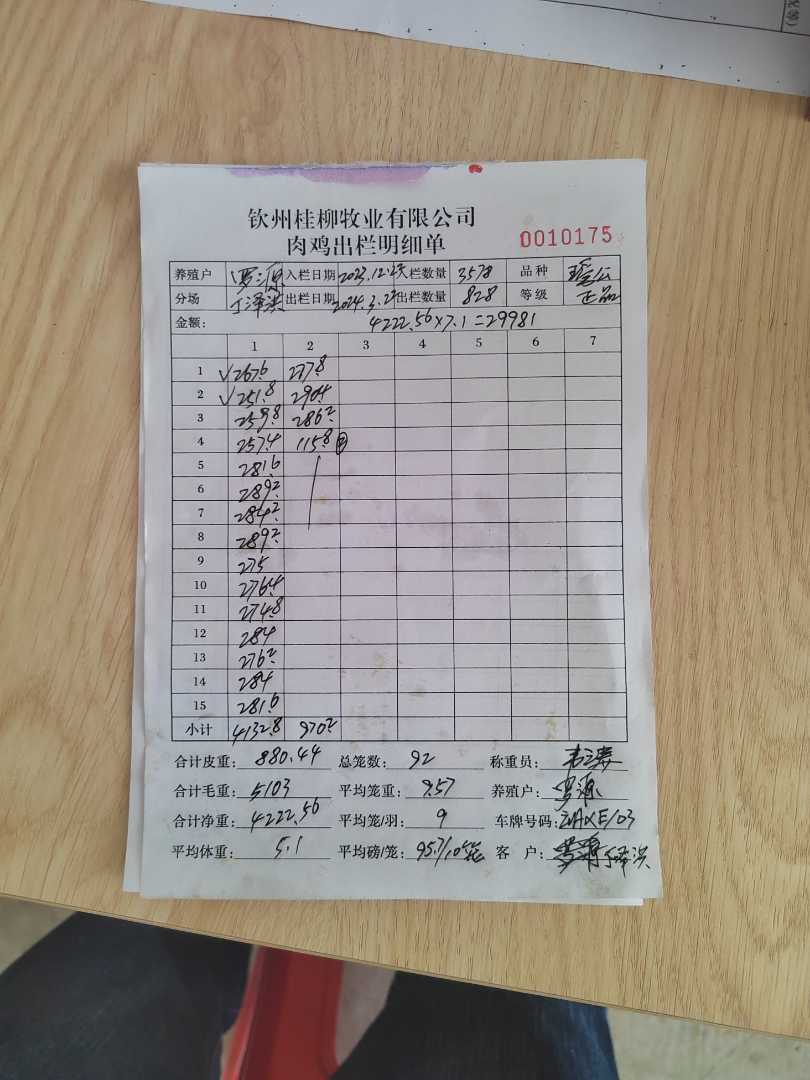 钦州桂柳牧业有限公司
肉鸡出栏明细单 0010175
养殖户 罗源 入栏日期 2023.12. 栏数量 3578 品种
分场 丁泽洪 出栏日期 2024.3.29 出栏数量 828 等级 正品
金额: 4222.56×7.1=29981
1 2 3 4 5 6 7
1 √267.6 277.8
2 √251.8 290.4
3 259.8 286.2
4 257.4 115.8 ④
5 281.6
6 289.2
7 284.2
8 289.2
9 275
10 276.4
11 274.8
12 284
13 276.2
14 284
15 281.6
小计 4132.8 970.2
合计皮重: 880.44 总笼数: 92 称重员:
合计毛重: 5103 平均笼重: 9.57 养殖户: 罗源
合计净重: 4222.56 平均笼/羽: 9 车牌号码:
平均体重: 5.1 平均磅/笼: 95.7/10笼 客 户: 丁泽洪